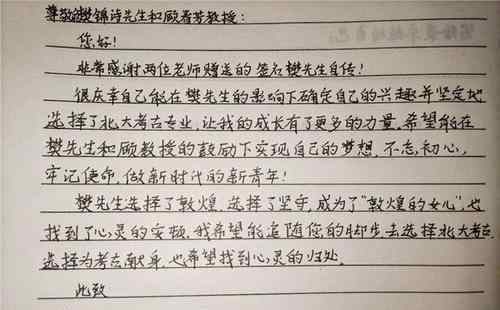 尊敬的樊锦诗先生和顾春芳教授:
您好!
非常感谢两位老师赠送的签名樊先生自传!
很庆幸自己能在樊先生的影响下确定自己的兴趣并坚定地
选择了北大考古专业,让我的成长有了更多的力量,希望能在
樊先生和顾教授的鼓励下实现自己的梦想,不忘初心,
牢记使命,做新时代的新青年!
樊先生选择了敦煌,选择了坚守,成为了“敦煌的女儿”,也
找到了心灵的安顿,我希望能追随您的脚步去选择北大考古
选择为考古献身,也希望找到心灵的归处.
此致